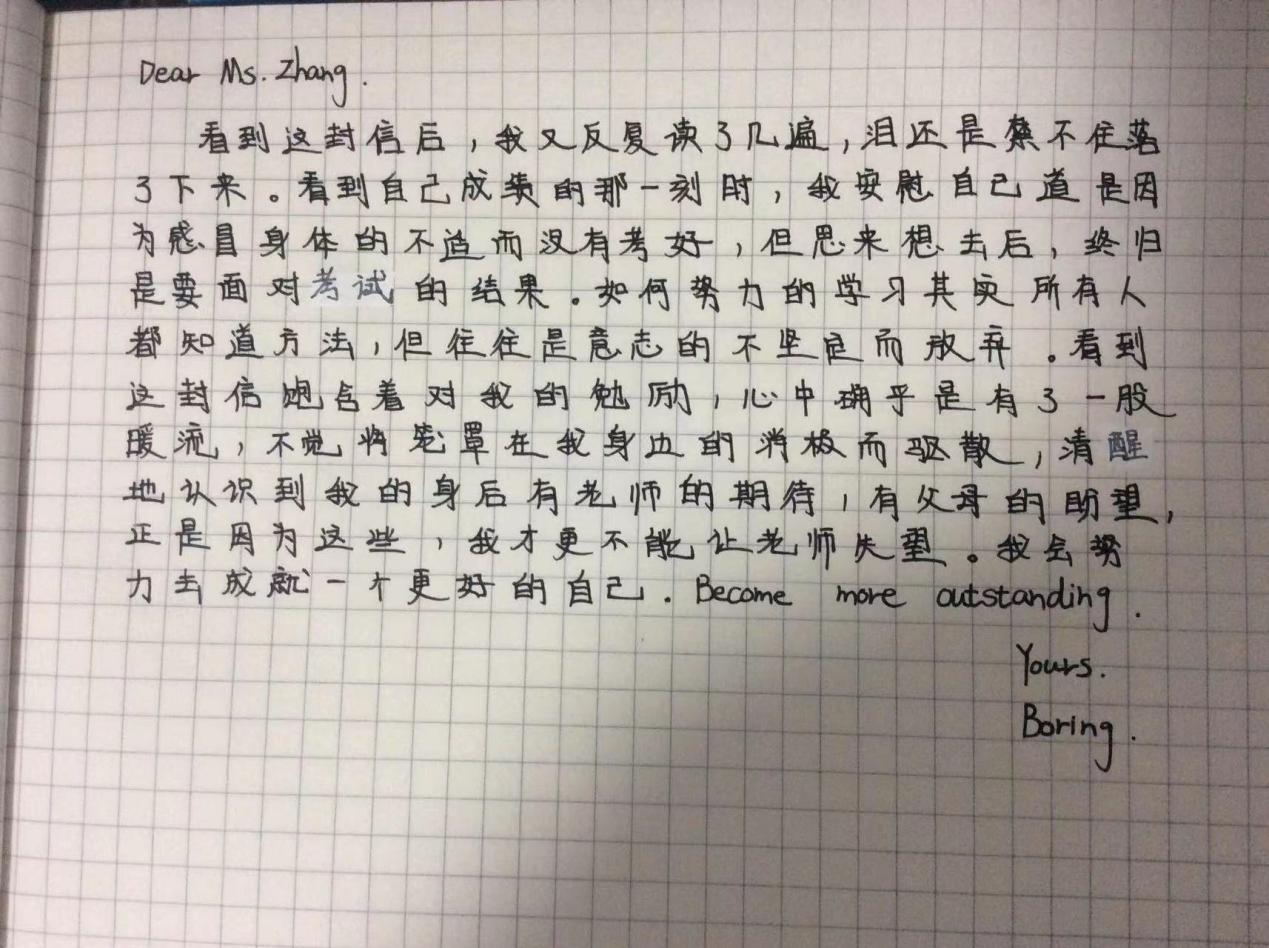 Dear Ms. Zhang.
看到这封信后，我又反复读了几遍，泪还是禁不住落
了下来。看到自己成绩的那一刻时，我安慰自己道是因
为感冒身体的不适而没有考好，但思来想去后，终归
是要面对考试的结果。如何努力的学习其实所有人
都知道方法，但往往是意志的不坚定而放弃。看到
这封信饱含着对我的勉励，心中确乎是有了一股
暖流，不觉将笼罩在我身边的消极而驱散，清醒
地认识到我的身后有老师的期待，有父母的期望，
正是因为这些，我才更不能让老师失望。我会努
力去成就一个更好的自己. Become more outstanding.
Yours.
Boring.